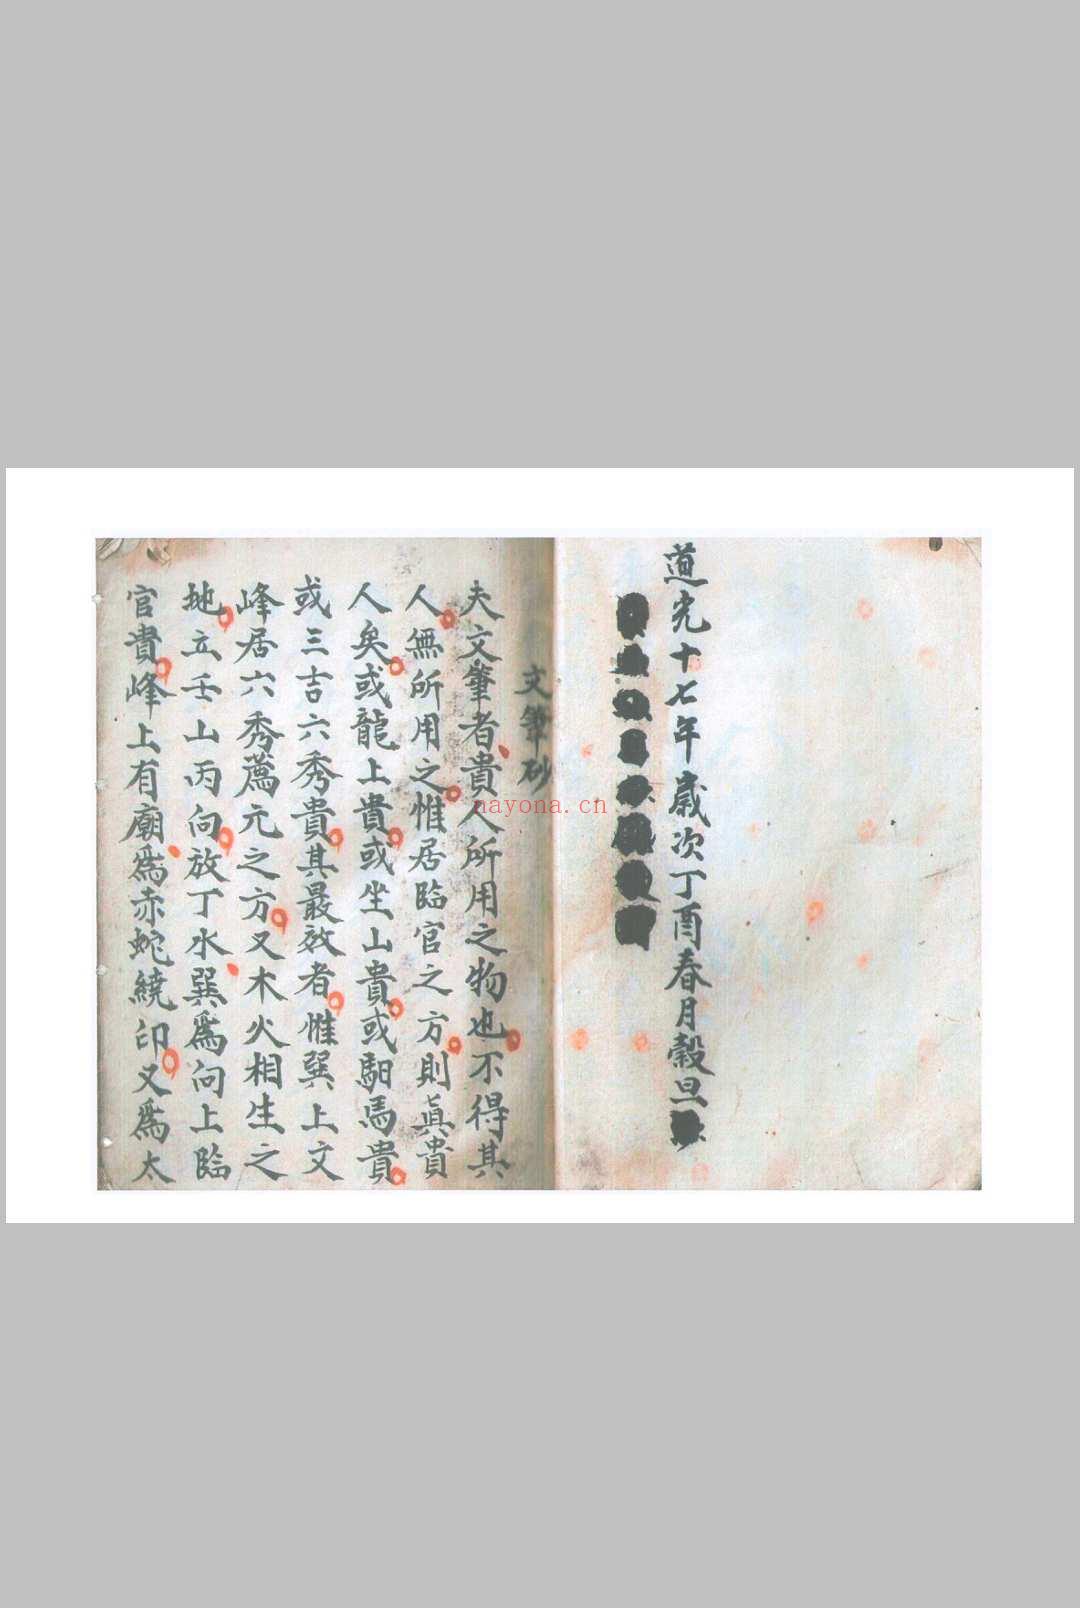 道光十七年歲次丁酉春月穀旦
文筆砂
夫文筆者貴人所用之物也不得其
人無所用之惟居臨官之方則眞貴
人矣或龍上貴或坐山貴或馹馬貴
或三吉六秀貴其最效者惟巽上文
峰居六秀薦元之方又木火相生之
地立壬山丙向放丁水巽爲向上臨
官貴峰上有廟爲赤蛇繞印又爲太
nayona.cn